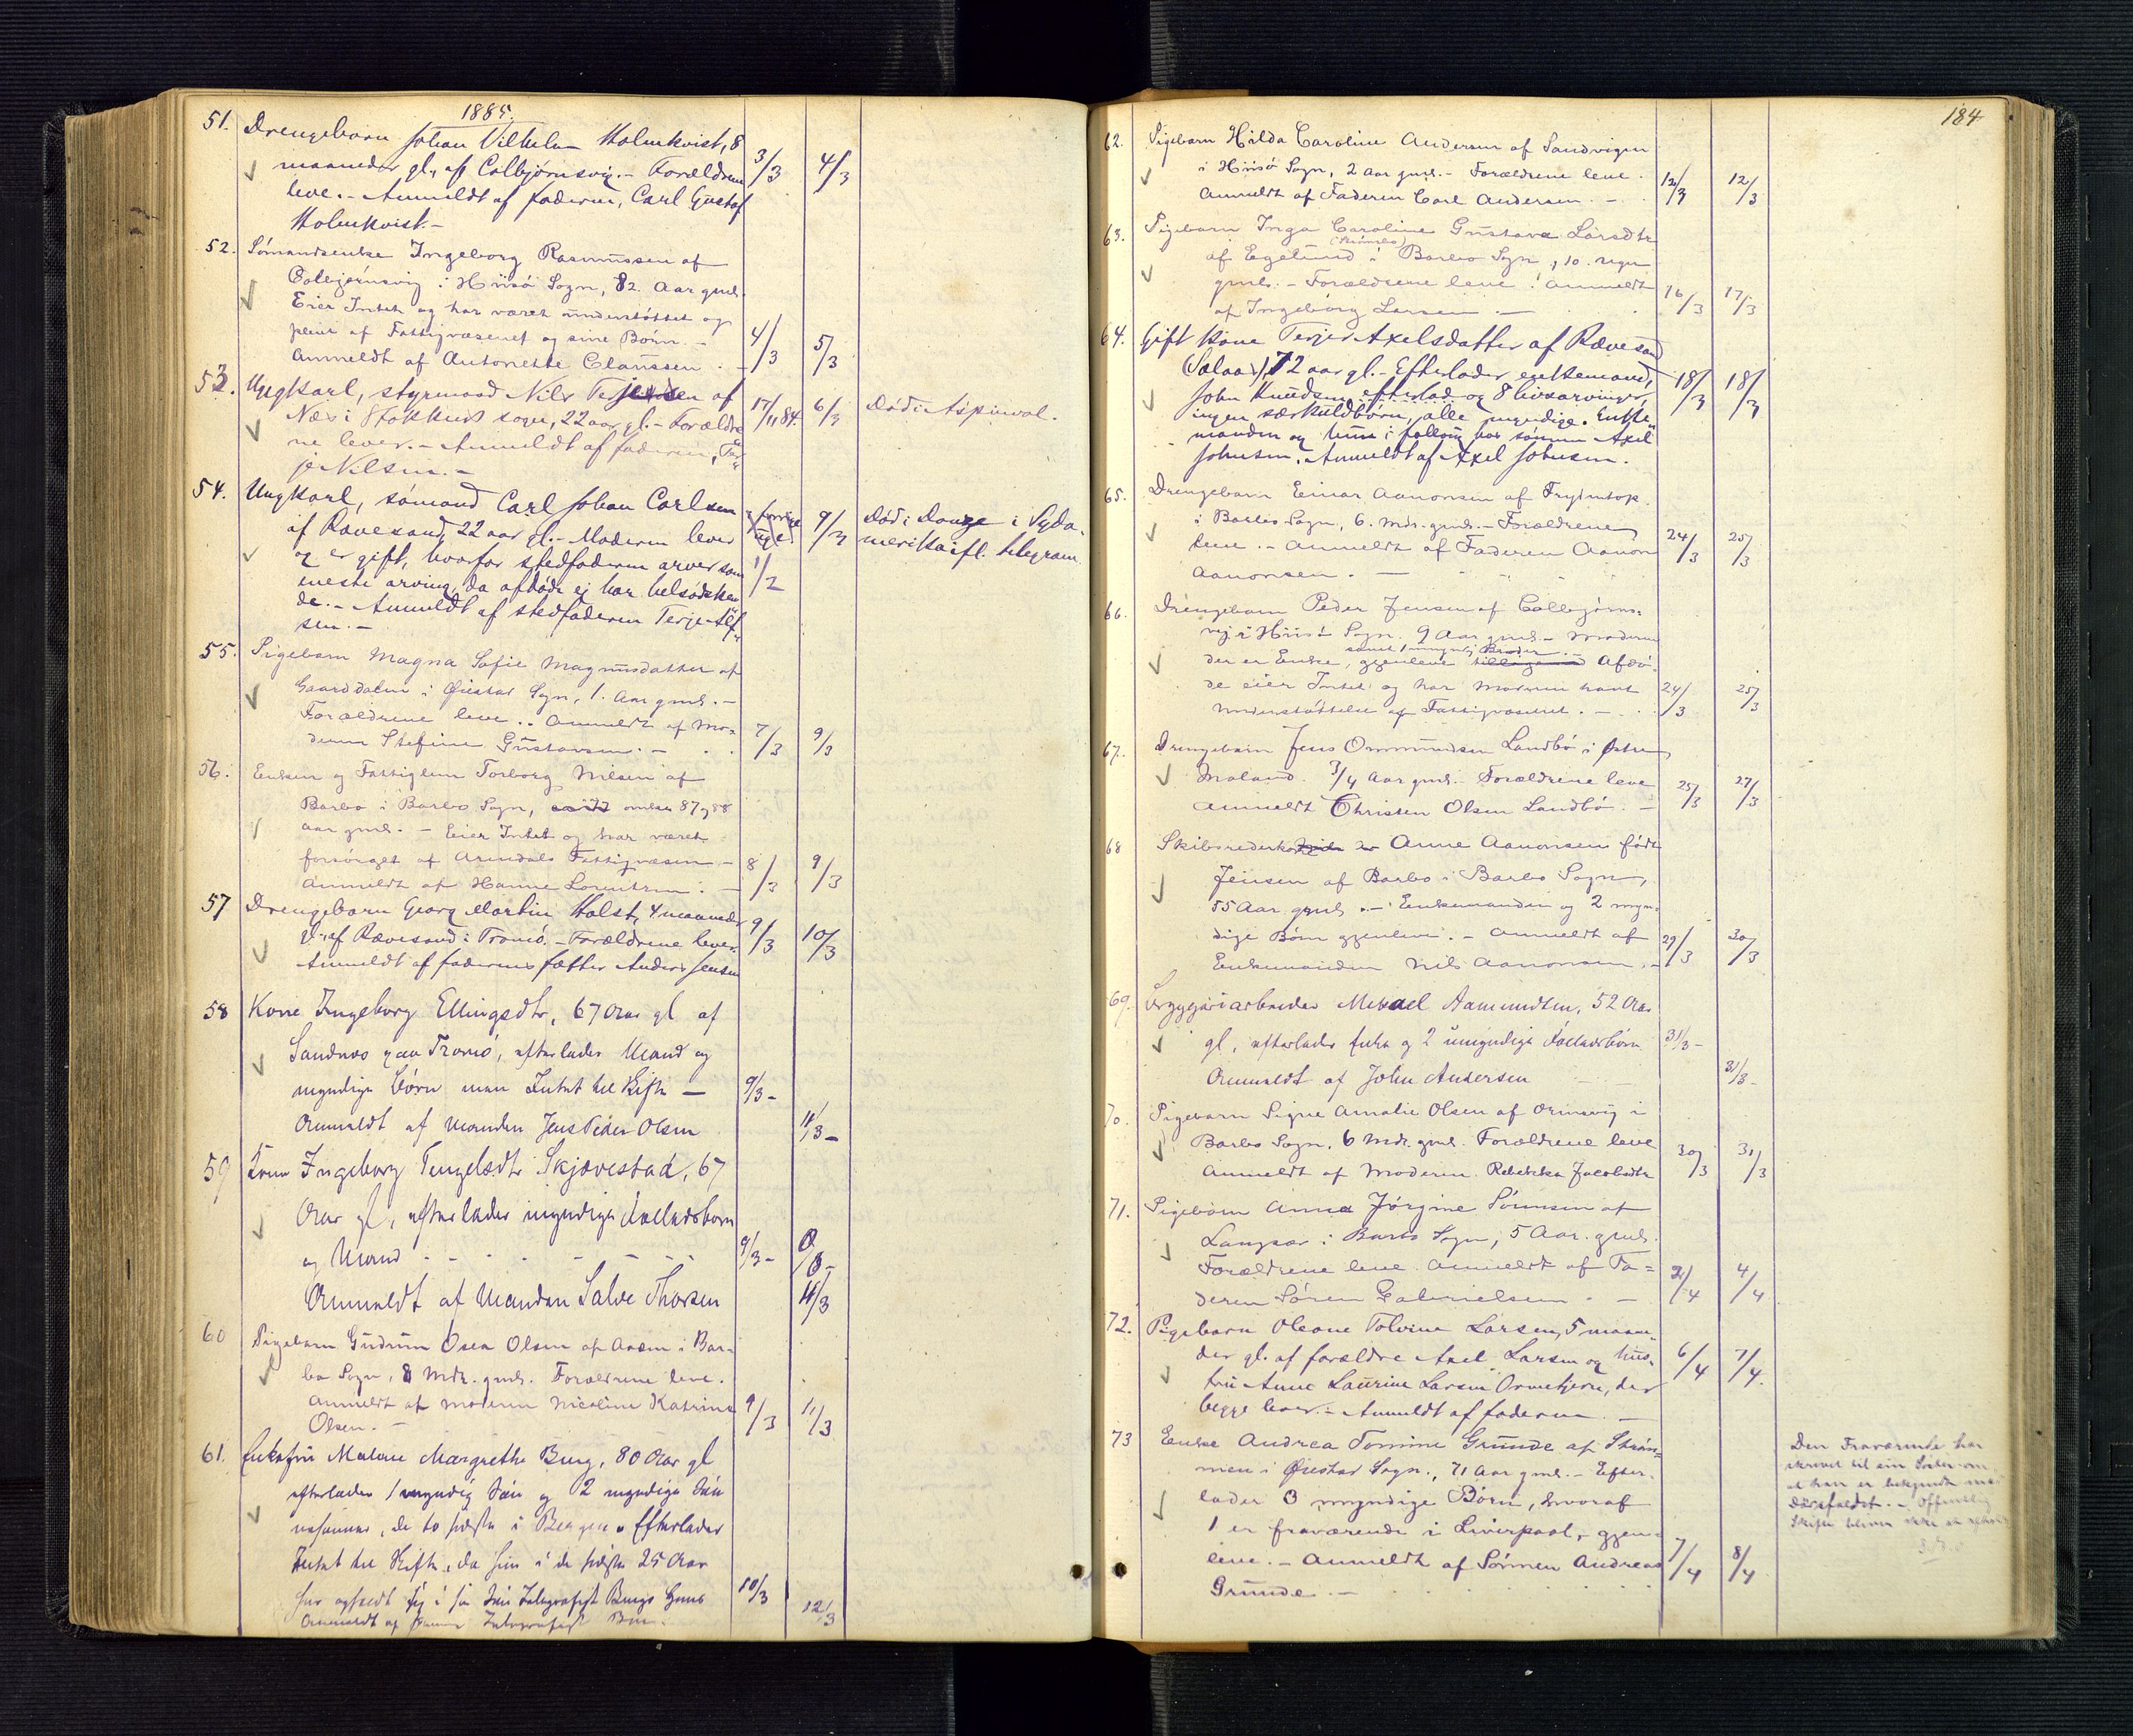 1885.
51. Drengebarn Johan Vilhelm Holmkvist, 8
maaneder gl., af Colbjørnsvig. - Forældrene 3/3 4/3
leve. - Anmeldt af faderen, Carl Gustaf
Holmkvist. -
52. Sømandsenke Ingeborg Rasmussen af
Colbjørnsvig i Hiisö Sogn, 82 Aar gml.
Eier Intet og har været understøttet og
pleiet af Fattigvæsenet og sine Børn. -
Anmeldt af Antonette Claussen. - 4/3 5/3
53. Ungkarl, styrmand Nils Terjesen af 17/11 84. 6/3 Død i Aspinval.
Næs i Stokken sogn, 22 aar gl. - Forældre
ne lever. - Anmeldt af faderen, Ter
je Nilsen. -
54. Ungkarl, sømand Carl Johan Carlsen forrige uge 9/3 Død i Douze i Syda
af Rævesand, 22 aar gl. - Moderen lever merika ifl. telegram.
og er gift, hvorfor stedfaderen arver som 1/2
eneste arving, da afdøde ej har helsødsken
de. - Anmeldt af stedfaderen Terje Alf
sen. -
55. Pigebarn Magna Sofie Magnusdatter af
Gaarddalen i Øiestad Sogn, 1. Aar gml. -
Forældrene leve. - Anmeldt af Mo=
deren Stefine Gustavsen. - 7/3 9/3
56. Enken og Fattiglem Torborg Nilsen af
Barbo i Barbo Sogn, omkr 87 g 88
Aar gml. - Eier Intet og har været
forsørget af Arendals Fattigvæsen -
Anmeldt af Hanne Lorentzen. - 8/3 9/3
57 Drengebarn Georg Martin Holst, 4 maaneder
gl. af Rævesand i Tromö. - Forældrene lever. 9/3 10/3
Anmeldt af faderens fætter Anders Jensen
58 Kone Ingeborg Ellingsdtr, 67 Aar gl af
Sandnæs paa Tromö, efterlader Mand og
myndige Børn men Intet til Skifte - 9/3-
Anmeldt af Manden Jens Peder Olsen 11/3-
59 Kone Ingeborg Tengelsdtr Skjævestad, 67
Aar gl, efterlader myndige Fællesbørn
og Mand - - - - 9/3-
Anmeldt af Manden Salve Thorsen 11/3
60 Pigebarn Gudrun Osea Olsen af Aasen i Bar=
bo Sogn, 8 Mdr. gml. Forældrene leve.
Anmeldt af Moderen Nicoline Katrine 9/3 11/3
Olsen. -
61. Enkefru Malene Margrethe Bung, 80 Aar gl
efterlader 1 myndig Søn og 2 myndige Søn
nesønner, de to sidste i Bergen. Efterlader
Intet til Skifte, da hun i de sidste 25 Aar
har opholdt sig i sin Søn Telegrafist Bungs Huus 10/3
Anmeldt af Sønnen Telegrafist 12/3
184
62. Pigebarn Hilda Caroline Andersen af Sandvigen
i Hiisö Sogn, 2 Aar gml. - Forældrene leve.
Anmeldt af Faderen Carl Andersen. - 12/3 12/3
63. Pigebarn Inga Caroline Gustava Larsdtr
(Strömsbo)
af Egelund i Barbo Sogn, 10. Uger
gml. - Forældrene leve. Anmeldt
af Ingeborg Larsen. - 16/3 17/3
64. Gift Kone Terjer Axelsdatter af Rævesand
(Salaas), 72 aar gl. - Efterlader enkemand, 18/3 18/3
John Knudsen efterlad og 8 livsarvinger,
ingen særkuldbørn, alle myndige. Enke
manden og hun i fællig hos sønnen Axel
Johnsen. Anmeldt af Axel Johnsen.
65. Drengebarn Einar Aanonsen af Frydentop
i Barbo Sogn, 6. Mdr. gml. - Forældrene
leve. - Anmeldt af Faderen Aanon 24/3 25/3
Aanonsen. -
66. Drengebarn Peder Jensen af Colbjørns=
vig i Hiisö Sogn. 9 Aar gml. - Moderen
samt 1 myndig Broder. -
der er Enke, gjenlever tilligemed Afdø=
de eier Intet og har Moderen havt 24/3 25/3
Understøttelse af Fattigvæsenet. -
67. Drengebarn Jens Ommundsen Landbö i Østre
Moland. 3/4 Aar gml. - Forældrene leve
Anmeldt Christen Olsen Landbö. - 25/3 27/3
68 Skibsrederkone Anne Aanonsen født
Jensen af Barbo i Barbo Sogn,
55 Aar gml. - Enkemanden og 2 myn=
dige Børn gjenleve. - Anmeldt af 29/3 30/3
Enkemanden Nils Aanonsen. -
69. Bryggeriarbeider Mikael Aamundsen, 52 Aar
gl, efterlader Enke og 2 umyndige Fællesbørn 31/3-
Anmeldt af John Andersen 31/3-
70. Pigebarn Signe Amalie Olsen af Orinsvig i
Barbo Sogn. 6 Mdr. gml. Forældrene leve
Anmeldt af Moderen. Rebekka Jacobsdtr 30/3 31/3
71. Pigebarn Anna Jörgine Sörensen af
Langsæ i Barbo Sogn, 5 Aar. gml.
Forældrene leve. Anmeldt af Fa=
deren Sören Gabrielsen. - 2/4 4/4
72. Pigebarn Oleane Tolvine Larsen, 5 maane
der gl. af forældre Axel Larsen og hus 6/4 7/4
tru Anne Laurine Larsen Ormetjern, der
begge lever. - Anmeldt af faderen. -
73 Enke Andrea Tomine Grunde af Ström=
men i Øiestad Sogn., 71 Aar gml. - Efter=
lader 3 myndige Børn, hvoraf
1 er fraværende i Liverpool, gjen=
leve. - Anmeldt af Sønnen Andreas 7/4 8/4
Grunde. -
Den Fraværende har
skrevet til sin Søster om
at han er bekjendt med
Dødsfaldet. - Offentlig
Skifte bliver ikke at